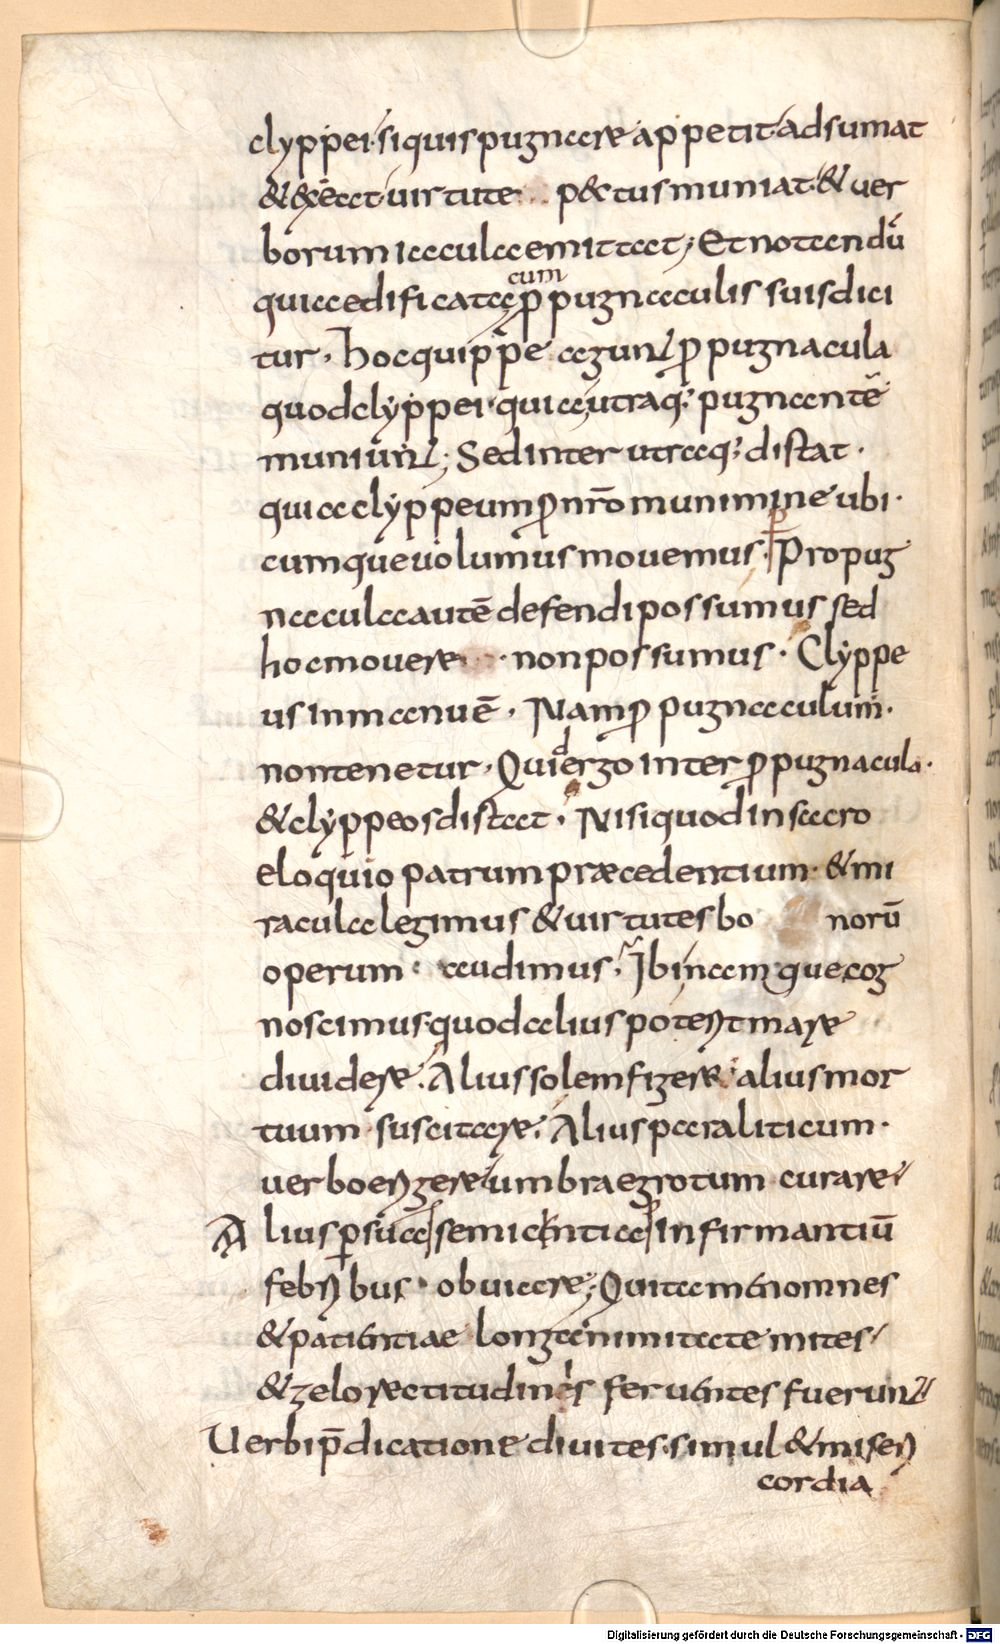 clyppei· si quis pugnare appetit adsumat
& &&etat· uirtute pectus muniat· & uer
borum iacula emittat; Et notandū
cum
quia edificata ꝓpugnaculis suis dici
tur· hoc quippe agunt ꝓpugnacula
quod clyppei· quia utraq; pugnantē
muniunt; Sed inter utraq; distat·
quia clyppeum ꝓ nr̄o munimine ubi·
cumque uolumus mouemus· Propug
nacula autē defendi possumus sed
hoc mouere non possumus· Clyppe
us in manu ē· Nam ꝓpugnaculum·
non tenetur· Quid ergo inter ꝓpugnacula·
& clyppeos distat· Nisi quod in sacro
eloquio patrum præcedentium· & mi
racula legimus & uirtutes bo norū
operum· audimus· Ibi namque cog
noscimus quod alius potent mare
diuidere· Alius solem figere· alius mor
tuum suscitare· Alius paraliticum·
uerbo erigere umbra egrotum curare
Alius ꝑ sua semicintia infirmantiū
febribus· obuiare; Qui tamen omnes
& patientiae longanimitate mites
& zelo rectitudinis feruentes fuerunt
Uerbi p̄dicatione diuites· simul & miseri
cordia
Digitalisierung gefördert durch die Deutsche Forschungsgemeinschaft - DFG